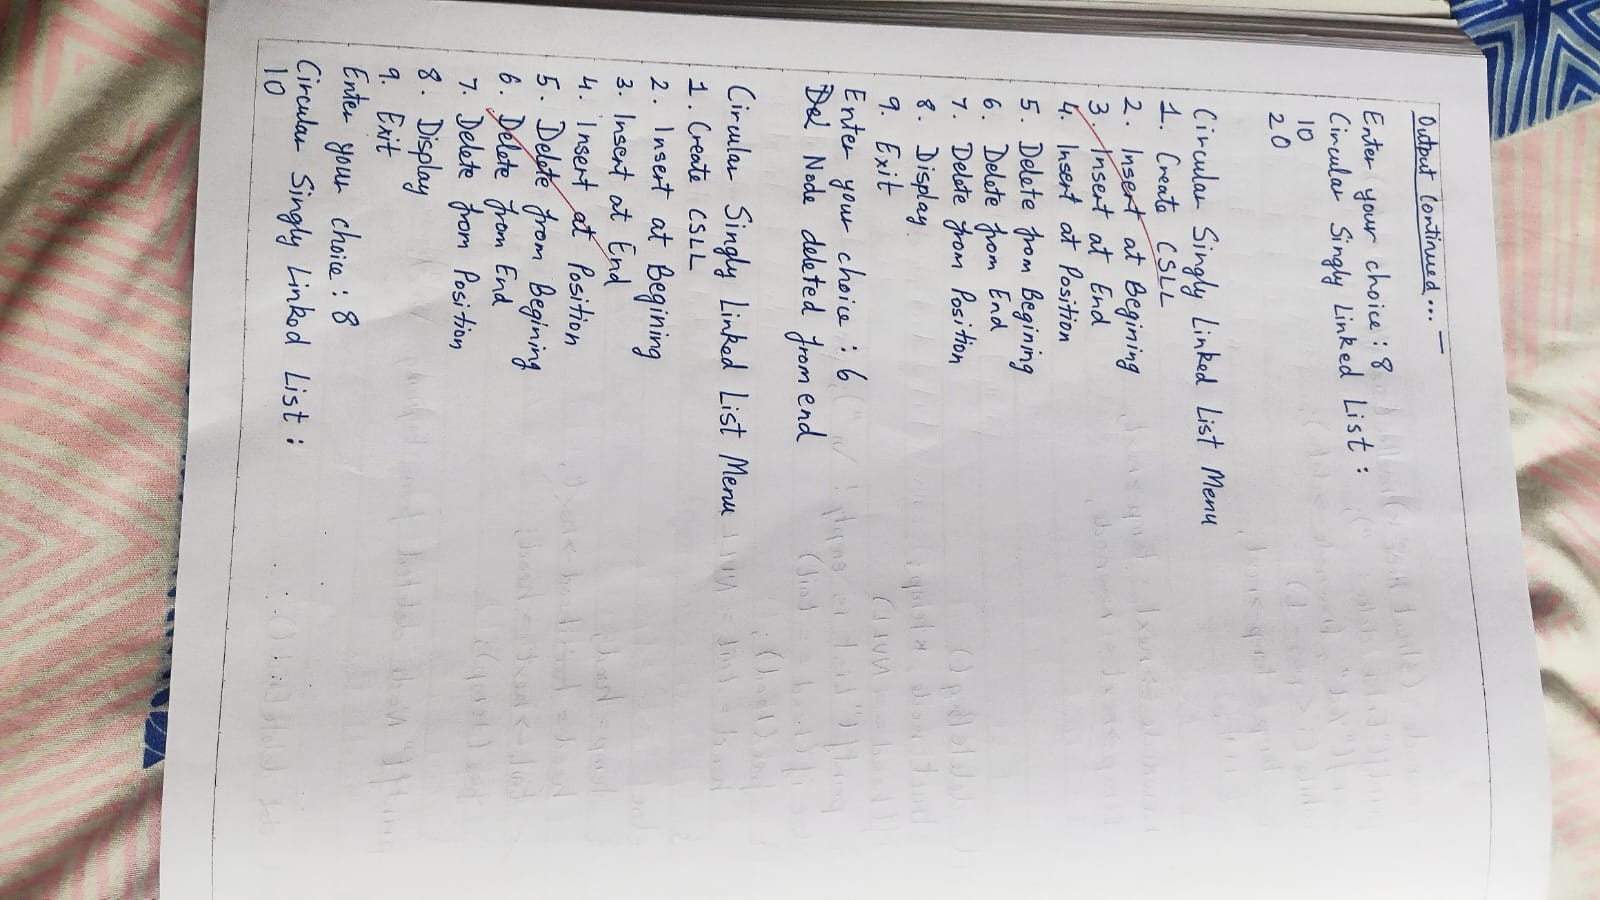 Output Continued... —
Enter your choice : 8
Circular Singly Linked List :
10
20
Circular Singly Linked List Menu
1. Create CSLL
2. Insert at Begining
3. Insert at End
4. Insert at Position
5. Delete from Begining
6. Delete from End
7. Delete from Position
8. Display.
9. Exit
Enter your choice : 6
Del Node deleted from end
Circular Singly Linked List Menu
1. Create CSLL
2. Insert at Begining
3. Insert at End
4. Insert at Position
5. Delete from Begining
6. Delete from End
7. Delete from Position
8. Display
9. Exit
Enter your choice : 8
Circular Singly Linked List :
10